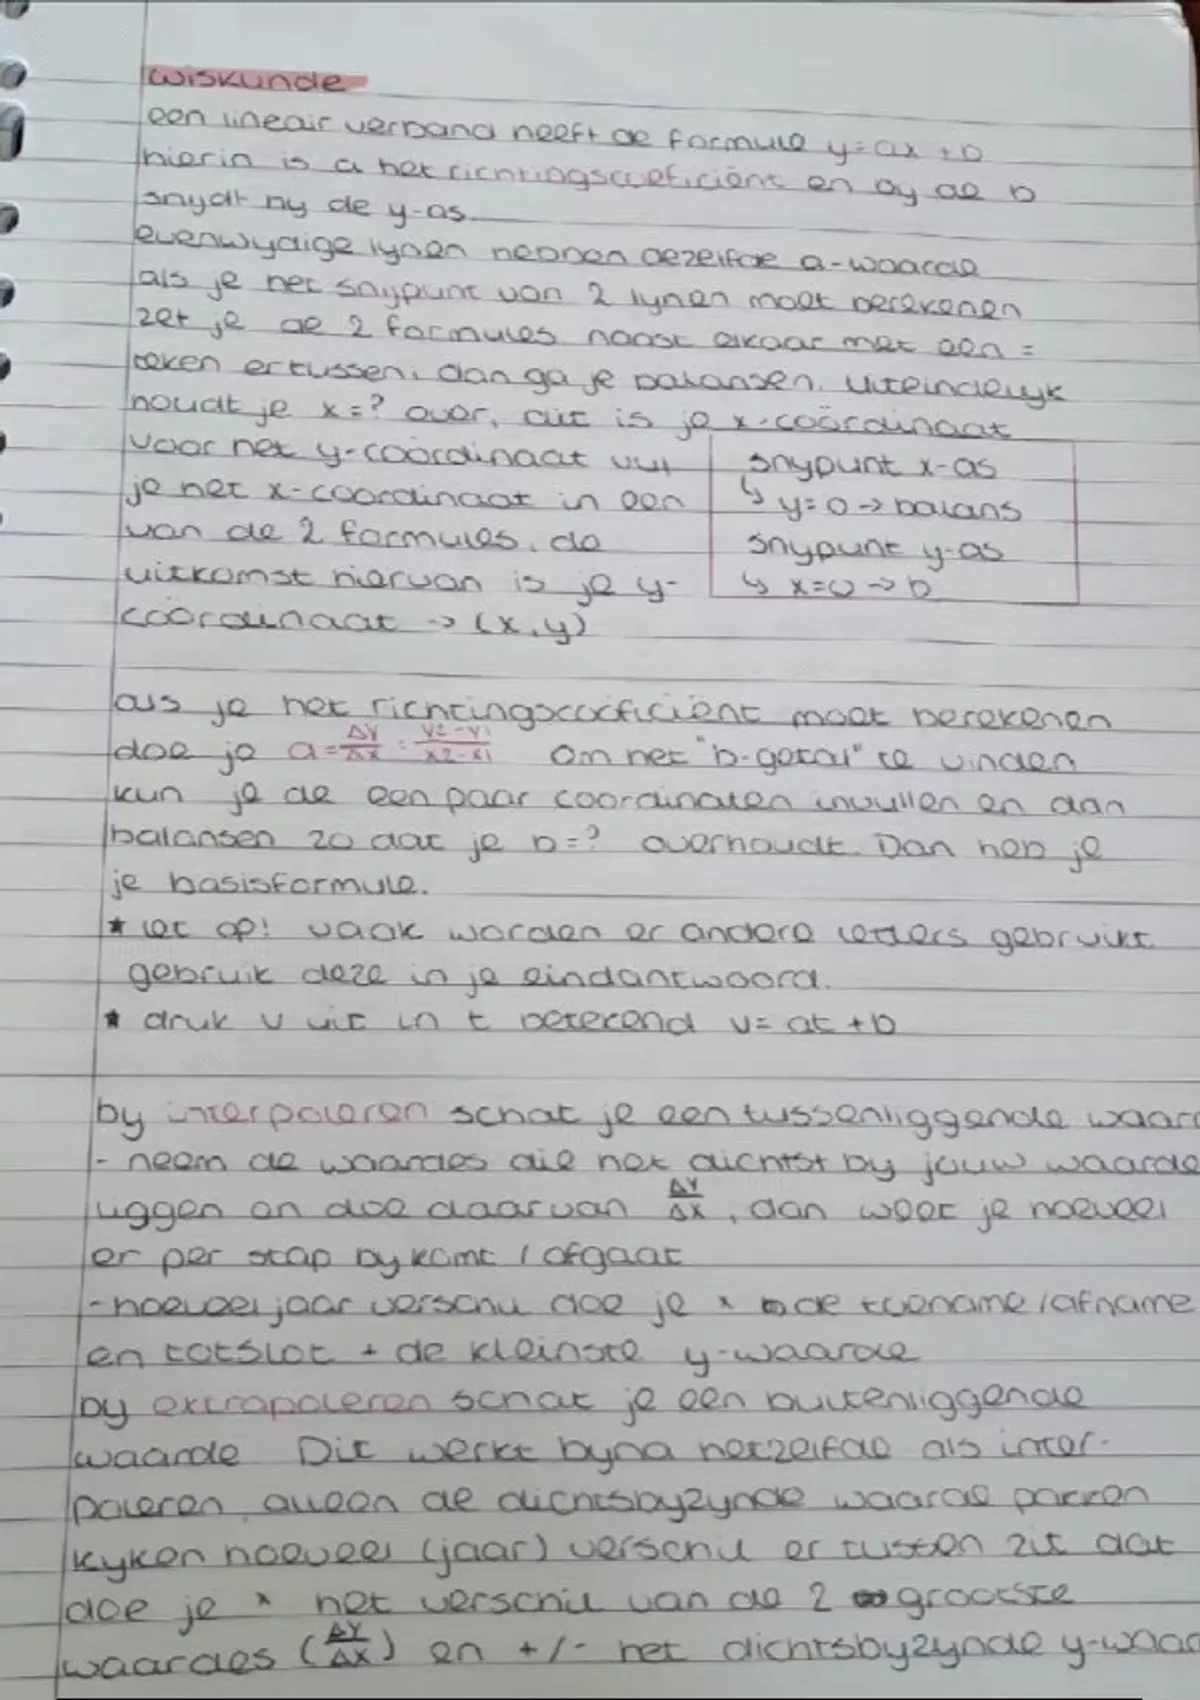 wiskunde
een lineair verband heeft de formule y=ax+b
hierin is a het richtingscoeficiënt en by de b
snydt hy de y-as.
evenwydige lynen hebben dezelfde a-waarde
als je het snypunt van 2 lynen moet berekenen
zet je de 2 formules naast elkaar met een =
teken ertussen, dan ga je balansen. Uiteindelyk
houdt je x=? over, dit is je x-coördinaat
voor het y-coördinaat vul
je het x-coordinaat in een
van de 2 formules. de
uitkomst hiervan is je y-
coördinaat -> (x,y)
snypunt x-as
↳ y=0 -> balans
snypunt y-as
↳ x=0 -> b
als je het richtingscoëficiënt moet berekenen
doe je a= ΔY/ΔX = Y2-Y1/X2-X1 om het "b-getal" te vinden
kun je de een paar coordinaten invullen en dan
balansen zo dat je b=? overhoudt. Dan heb je
je basisformule.
* let op! vaak worden er andere letters gebruikt
gebruik deze in je eindantwoord.
* druk v uit in t betekend v= at +b
by interpoleren schat je een tussenliggende waard
- neem de waardes die het dichtst by jouw waarde
liggen en doe daarvan ΔY/ΔX, dan weet je hoeveel
er per stap by komt / afgaat
- hoeveel jaar verschil doe je x de toename/afname
en totslot + de kleinste y-waarde
by extrapoleren schat je een buitenliggende
waarde. Dit werkt byna hetzelfde als inter-
poleren, alleen de dichtsbyzynde waarde pakken
kyken hoeveel (jaar) verschil er tussen zit dat
doe je x het verschil van de 2 grootste
waardes (ΔY/ΔX) en +/- het dichtsbyzynde y-waar